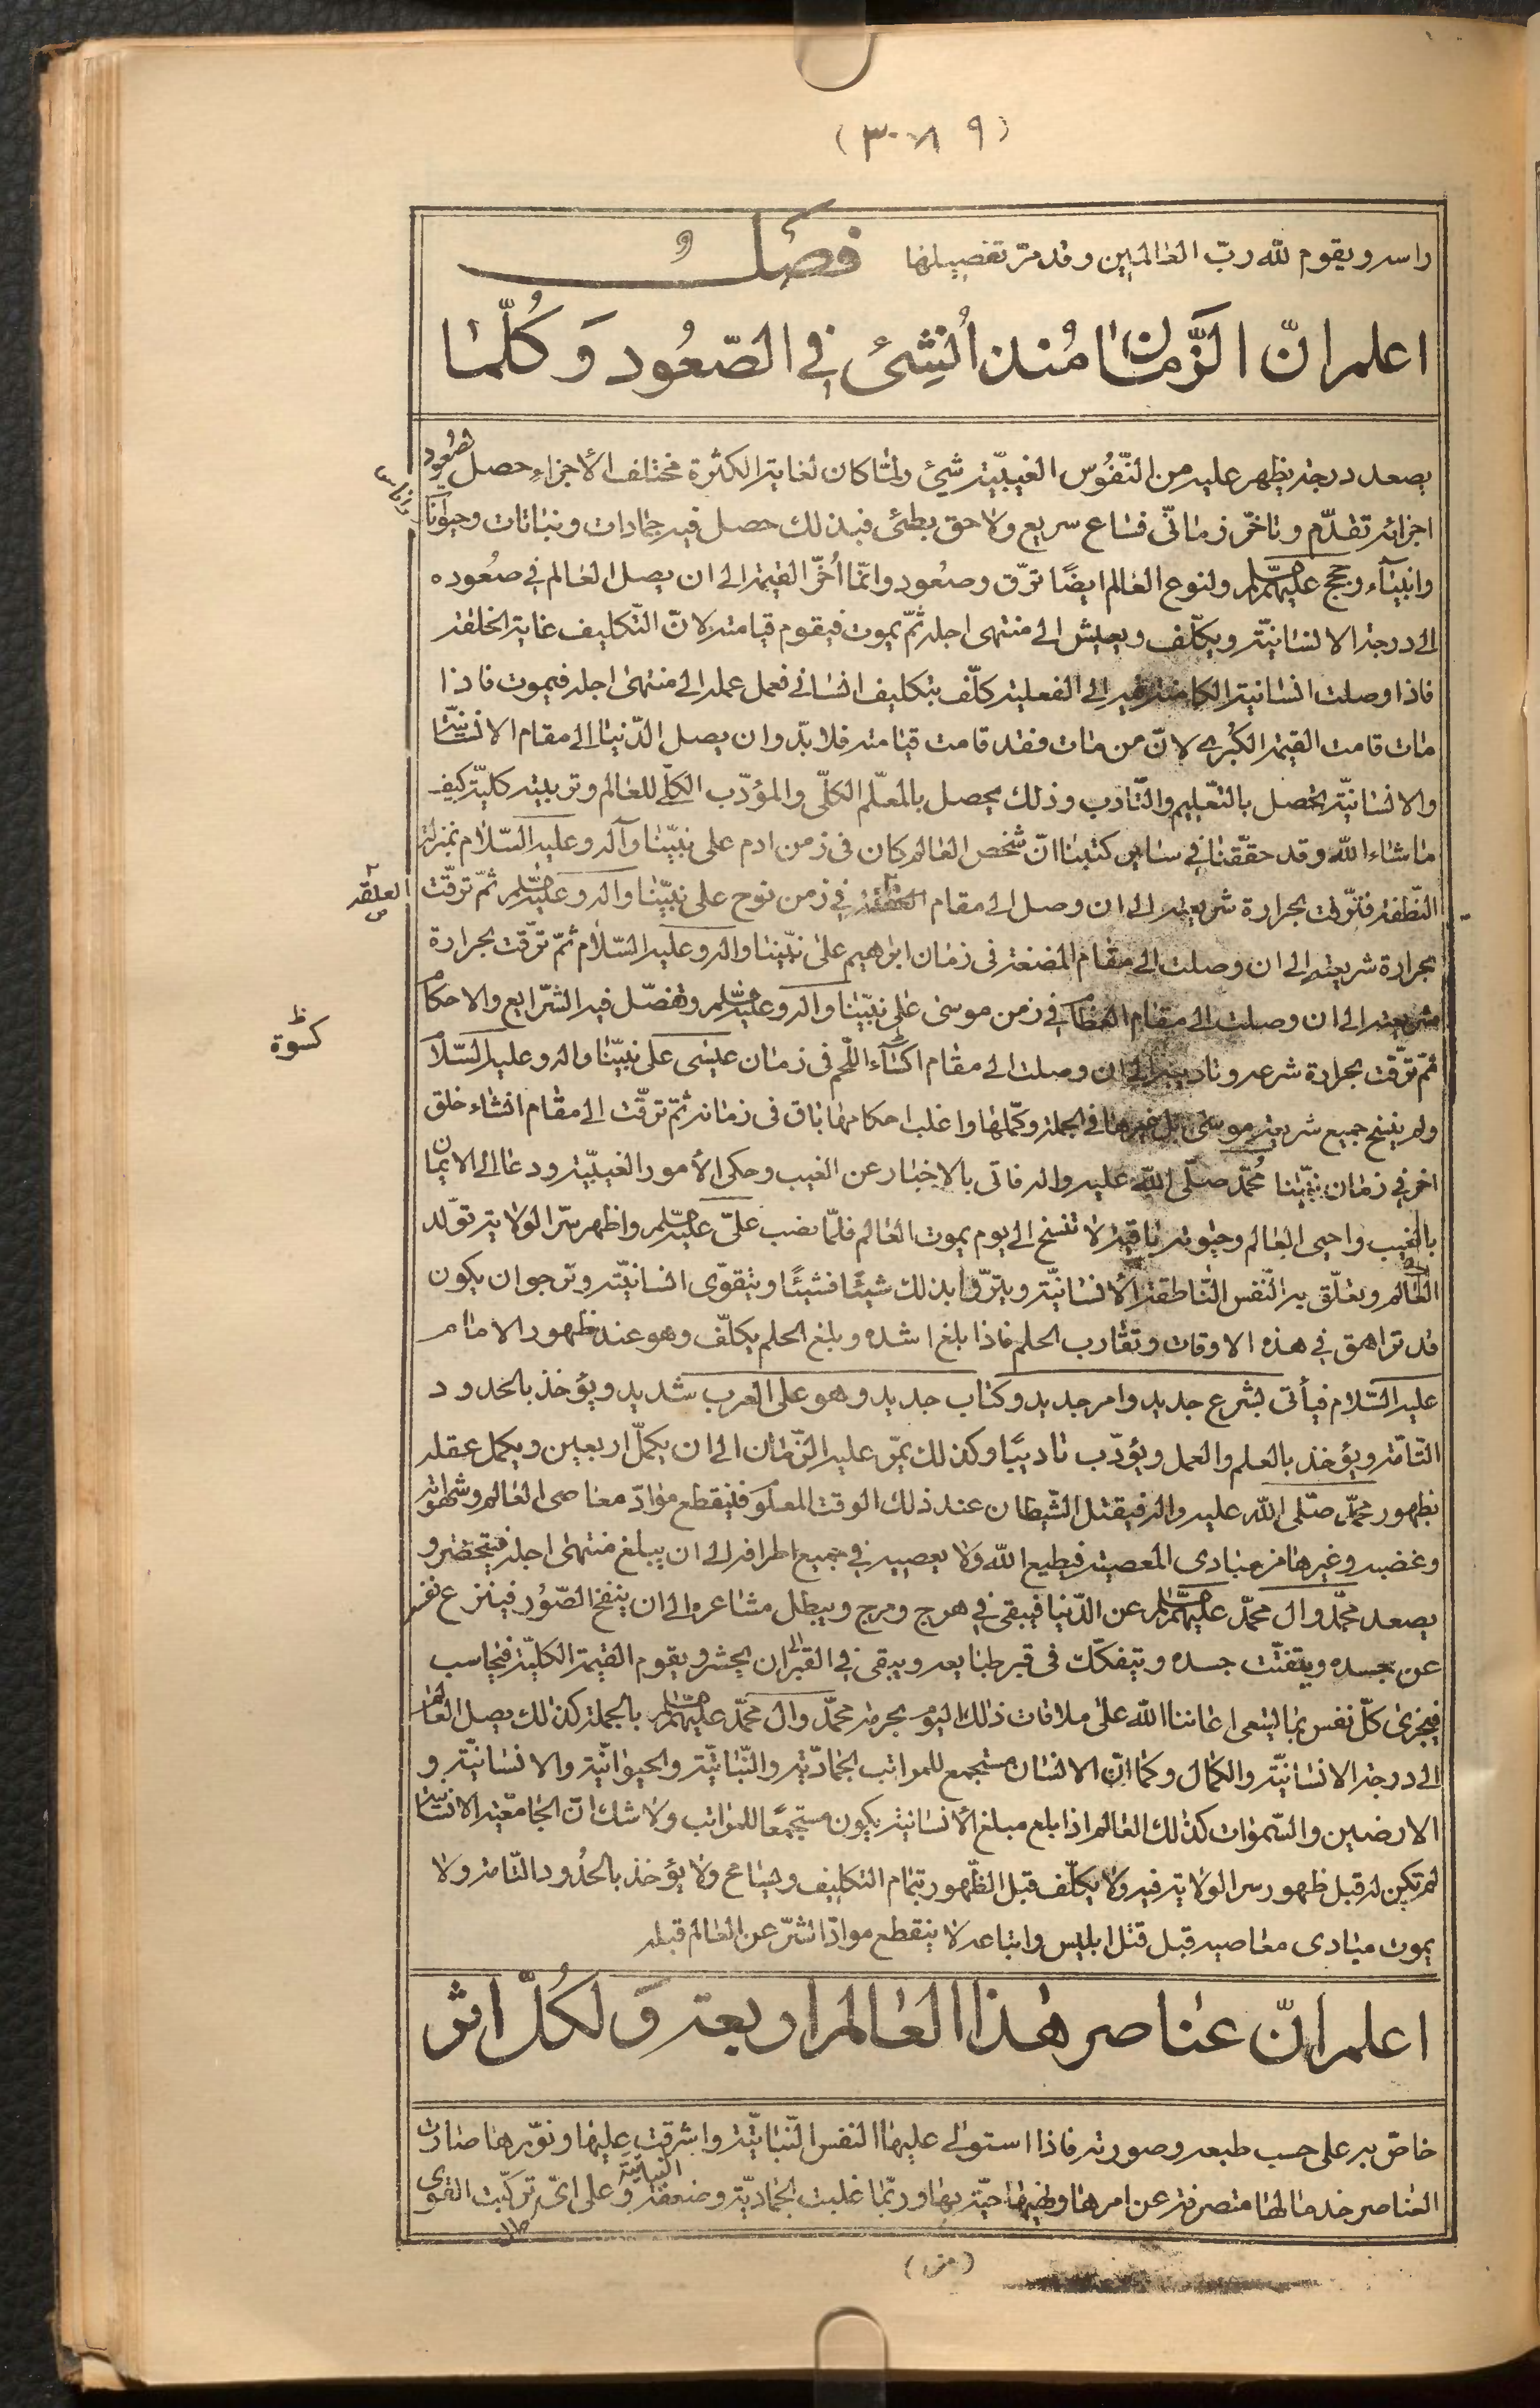 (٣٠٨٩)
راسه ويقوم لله ربّ العالمين وقد مرّ تفصيلها فصل
اعلم انّ الزّمان مُنذ اُنشِئ في الصّعُود وَكُلّما
يصعد درجة يظهر عليه من النّفُوس الغيبيّة شيئ ولمّا كان لغاية الكثرة مختلف الأجزاء حصل لصُعُود
اجزائه تقدّم وتاخّر زمانّى فساع سريع ولاحق بطئ فبذلك حصل فيه جمادات ونباتات وحيوانات
وانبياء وحجج عليهم السلم ولنوع العالم ايضًا ترّق وصعُود وانّما اُخّر القيمة الى ان يصل العالم في صعُوده
الى درجة الانسانيّة ويكلّف ويعيش الى منتهى اجله ثمّ يموت فيقوم قيامته لانّ التّكليف غاية الخلقة
فاذا وصلت انسانيّة الكامنة فيه الى الفعلية كلّف بتكليف انسانى فعمل عمله الى منتهى اجله فيموت فاذا
مات قامت القيمة الكُبرى لانّ من مات فقد قامت قيامته فلابدّ وان يصل الدّنيا الى مقام الانسانيّة
والانسانيّة تحصل بالتعّليم والتّادب وذلك يحصل بالمعلّم الكلّى والمؤدّب الكلّي للعالم وتربيته كليّة كيف
ماشاء الله وقد حققّنا في ساير كتبنا انّ شخص العالم كان فى زمن ادم على نبيّنا وآله وعليه السّلام بمنزلة
النّطفة فترّقت بحرارة شريعته الى ان وصل الى مقام العلقة في زمن نوح على نبيّنا واله وعليه السلم ثمّ ترقّت
العلقة
بحرارة شريعته الى ان وصلت الى مقام المضغة فى زمان ابراهيم على نبيّنا واله وعليه السّلام ثمّ ترّقت بحرارة
شريعته الى ان وصلت الى مقام العظام في زمن موسى على نبيّنا واله وعليه السلم وتفصّل فيه الشرّايع والاحكام
كسوة
ثمّ ترّقت بحرارة شرعه وتاديبه الى ان وصلت الى مقام اكساء اللّحم فى زمان عيسى على نبيّنا واله وعليه السّلام
ولم ينسخ جميع شريعة موسى بل غيرها في الجملة وكمّلها واغلب احكامها باق فى زمانه ثمّ ترقّت الى مقام انشاء خلق
اخر في زمان نبيّنا مُحمّد صلّى الله عليه واله فاتى بالاخبار عن الغيب وحكى الأمور الغيبيّة ودعا الى الايمان
بالغيب واحيى العالم وحيوته باقية لا تنسخ الى يوم يموت العالم فلمّا نصب علىّ عليه السلم واظهر سّر الولاية تولّد
العالم وتعلّق به النّفس النّاطقة الأنسانيّة ويترّقى بذلك شيئًا فشيئًا ويتقوّى انسانيّته ونرجو ان يكون
قد تراهق في هذه الاوقات وتقارب الحلم فاذا بلغ اشده وبلغ الحلم يكلّف وهو عند ظهور الامام
عليه السّلام فيأتى بشرع جديد وامر جديد وكتاب جديد وهو على العرب شديد ويؤخذ بالحدود
التّامّة ويؤخذ بالعلم والعمل ويؤدّب تاديبًا وكذلك يمّر عليه الزّمان الى ان يكمّل اربعين ويكمل عقله
بظهور محمّد صلّى الله عليه واله فيقتل الشّيطان عند ذلك الوقت المعلوم فينقطع موادّ معاصى العالم وشهواته
وغضبه وغيرها من مبادى المعصية فيطيع الله ولا يعصيه في جميع اطرافه الى ان يبلغ منتهى اجله فيحتضر و
يصعد محمّد وال محمّد عليهم السلم عن الدّنيا فيبقى في هرج ومرج ويبطل مشاعره الى ان ينفخ الصّوُر فينزع نفسه
عن جسده ويتفتّت جسده ويتفكّك فى قبر طبايعه ويبقى في القبر الى ان يحشر ويقوم القيمة الكليّة فيحاسب
فيجزى كلّ نفس بما تسعى اعاننا الله على ملاقات ذلك اليوم بحرمة محمّد وال محمّد عليهم السلم بالجملة كذلك يصل العالم
الى درجة الانسانيّة والكمال وكما انّ الانسان مستجمع للمراتب الجماديّة والنّباتيّة والحيوانيّة والانسانيّة و
الارضين والسّموات كذلك العالم اذا بلغ مبلغ الأنسانية يكون مستجمعًا للمراتب ولا شك انّ الجامعّية الانسانية
لم تكن له قبل ظهور سر الولاية فيه ولا يكلّف قبل الظّهور بتمام التكليف ويسامح ولا يؤخذ بالحُدود التّامة ولا
يموت مبادى معاصيه قبل قتل ابليس واتباعه لا ينقطع موادّ الشرّ عن العالم قبله
اعلم انّ عناصر هذا العالم اربعة وَلكُلّ اثر
خاصّ به على حسب طبعه وصورته فاذا استولى عليها النفس النّباتيّة واشرقت عليها ونوّرها صارت
العناصر خدما لها متصرفة عن امرها ونهيها حيّة بها وربّما غلبت الجماديّة وضعفت النباتيّة وعلى اىّ تركبّت القوى